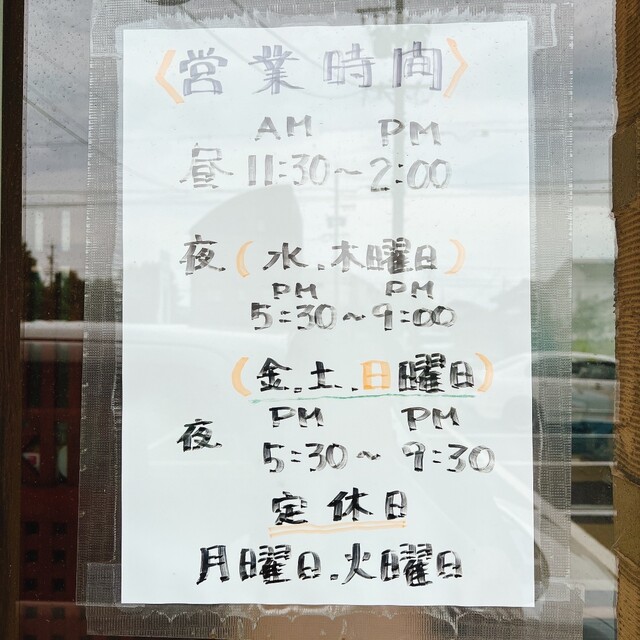 〈営業時間〉
AM PM
昼 11:30～2:00
夜(水.木曜日)
PM PM
5:30～9:00
(金.土.日曜日)
PM PM
夜 5:30～9:30
定休日
月曜日.火曜日